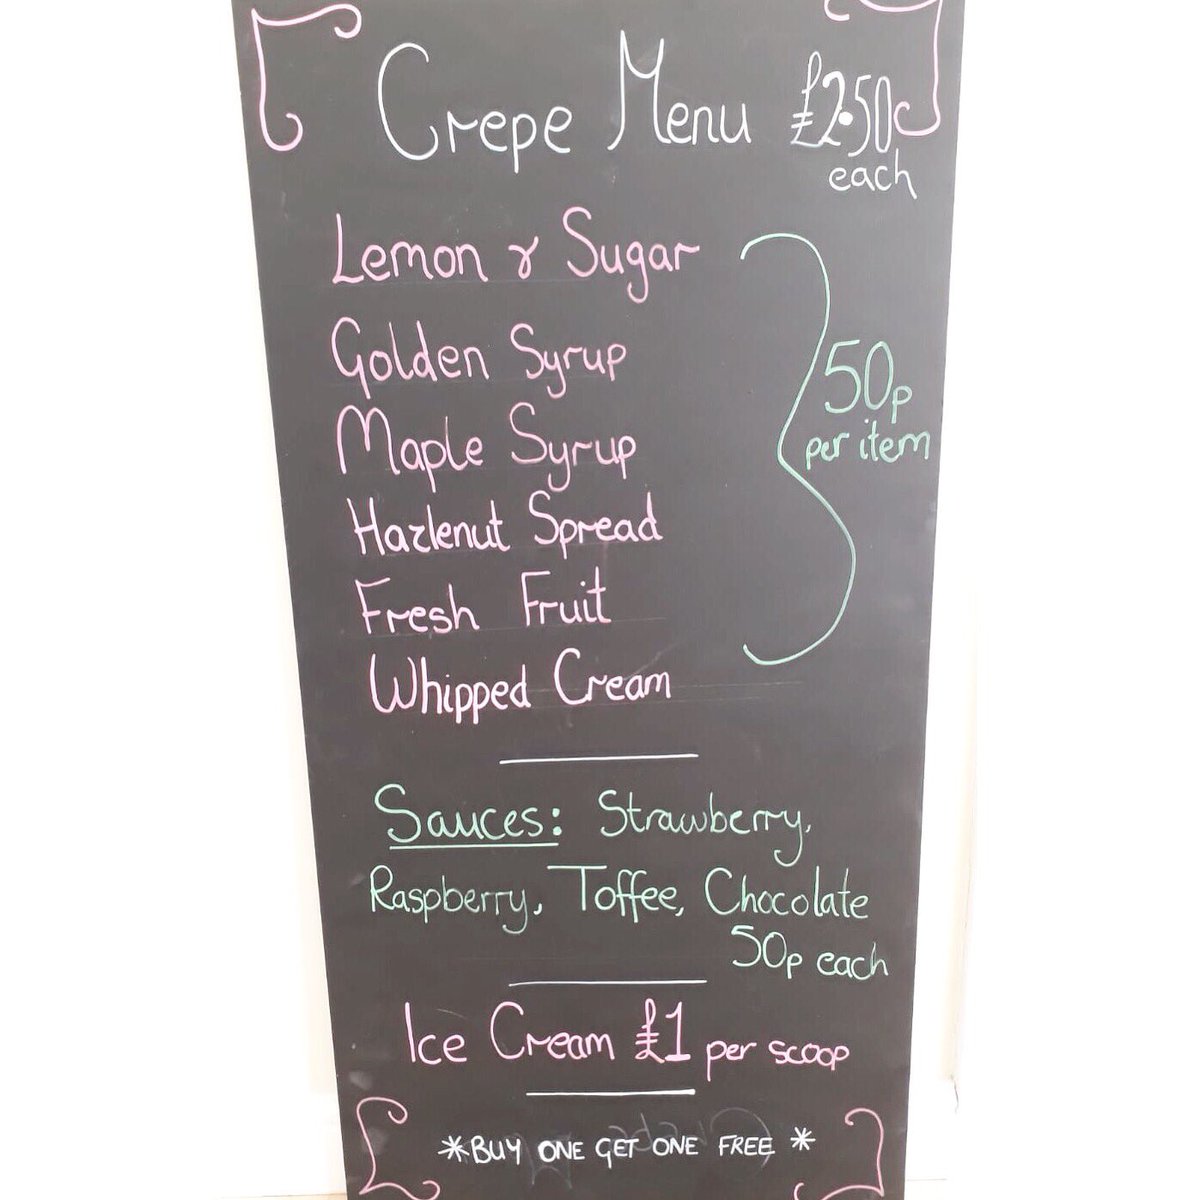 Crepe Menu £2.50 each
Lemon & Sugar
Golden Syrup
50p
per item
Maple Syrup
Hazlenut Spread
Fresh Fruit
Whipped Cream
Sauces: Strawberry,
Raspberry, Toffee, Chocolate
50p each
Ice Cream £1 per scoop
*BUY ONE GET ONE FREE *